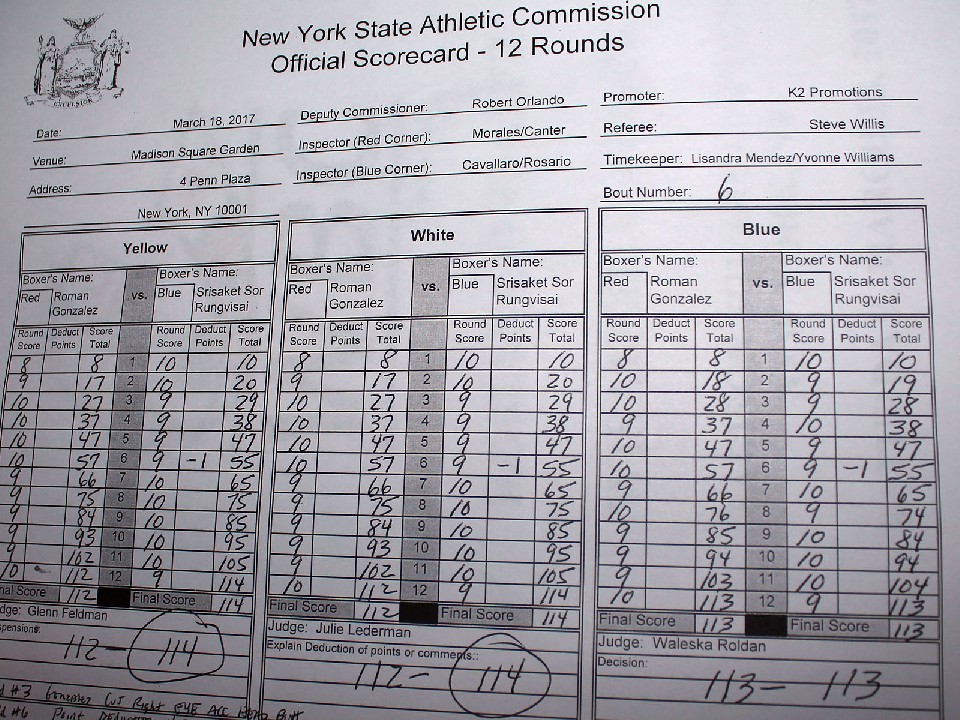 New York State Athletic Commission
Official Scorecard - 12 Rounds
EXCELSIOR
Date: March 18, 2017 Deputy Commissioner: Robert Orlando Promoter: K2 Promotions
Venue: Madison Square Garden Inspector (Red Corner): Morales/Canter Referee: Steve Willis
Address: 4 Penn Plaza Inspector (Blue Corner): Cavallaro/Rosario Timekeeper: Lisandra Mendez/Yvonne Williams
New York, NY 10001 Bout Number: 6
Yellow White Blue
Boxer's Name: Boxer's Name: Boxer's Name: Boxer's Name: Boxer's Name: Boxer's Name:
Red Roman Gonzalez vs. Blue Srisaket Sor Rungvisai Red Roman Gonzalez vs. Blue Srisaket Sor Rungvisai Red Roman Gonzalez vs. Blue Srisaket Sor Rungvisai
Round Score Deduct Points Score Total Round Score Deduct Points Score Total Round Score Deduct Points Score Total Round Score Deduct Points Score Total Round Score Deduct Points Score Total Round Score Deduct Points Score Total
8 8 1 10 10 8 8 1 10 10 8 8 1 10 10
9 17 2 10 20 9 17 2 10 20 10 18 2 9 19
10 27 3 9 29 10 27 3 9 29 10 28 3 9 28
10 37 4 9 38 10 37 4 9 38 9 37 4 10 38
10 47 5 9 47 10 47 5 9 47 10 47 5 9 47
10 57 6 9 -1 55 10 57 6 9 -1 55 10 57 6 9 -1 55
9 66 7 10 65 9 66 7 10 65 9 66 7 10 65
9 75 8 10 75 9 75 8 10 75 10 76 8 9 74
9 84 9 10 85 9 84 9 10 85 9 85 9 10 84
9 93 10 10 95 9 93 10 10 95 9 94 10 10 94
9 102 11 10 105 9 102 11 10 105 9 103 11 10 104
10 112 12 9 114 10 112 12 9 114 10 113 12 9 113
nal Score 112 Final Score 114 Final Score 112 Final Score 114 Final Score 113 Final Score 113
dge: Glenn Feldman Judge: Julie Lederman Judge: Waleska Roldan
spensions: Explain Deduction of points or comments:: Decision:
112- 114 112- 114 113- 113
d #3 Gonzalez Cut Right EYE ACC Head Butt
d #6 Point